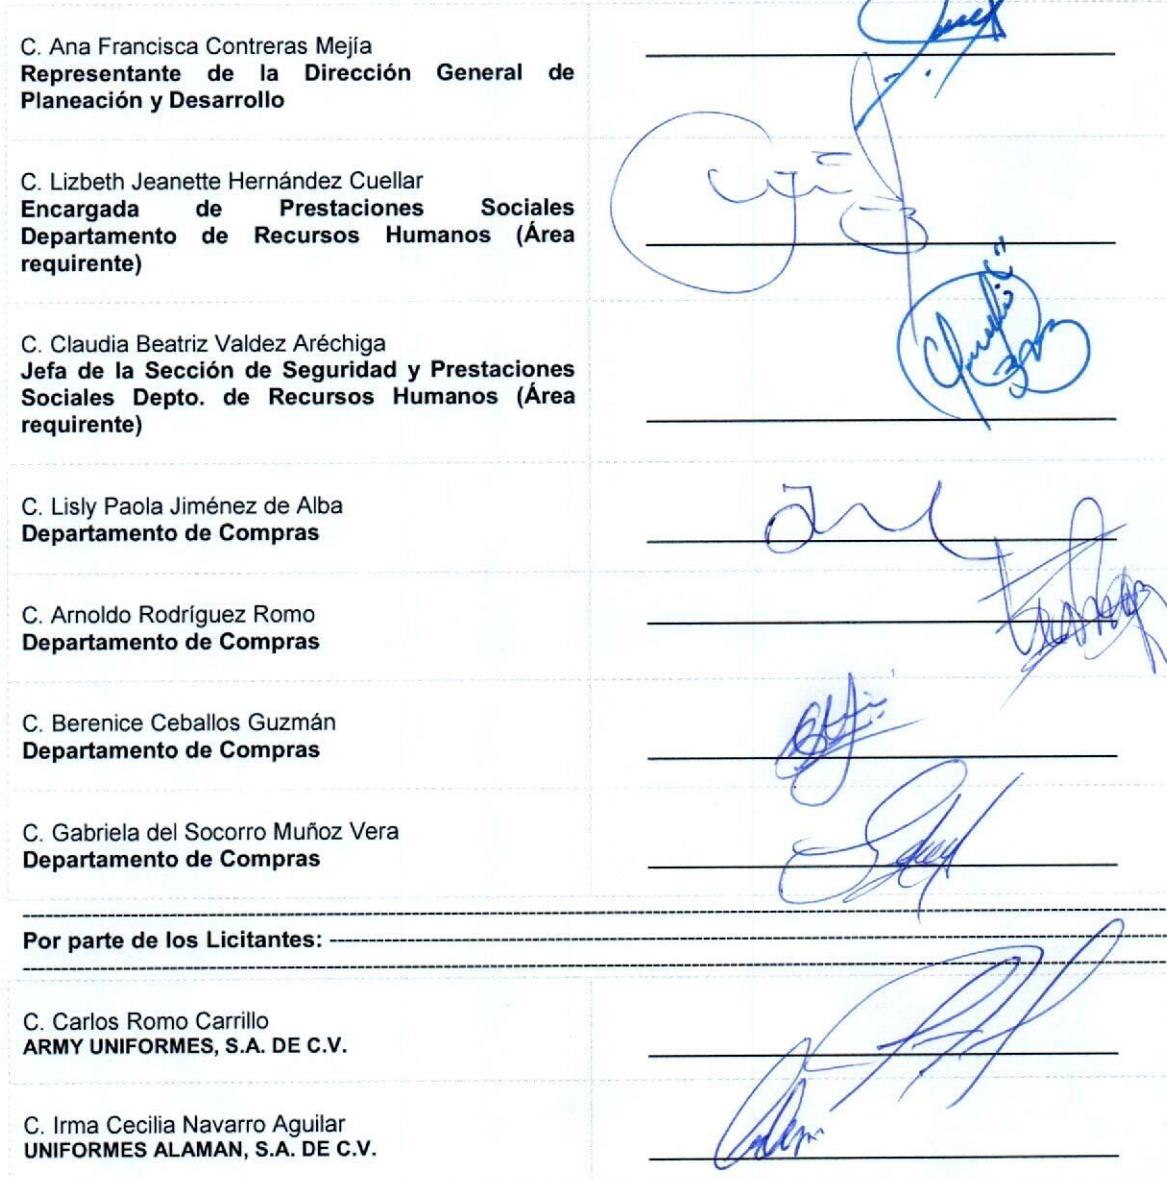 C. Ana Francisca Contreras Mejía
Representante de la Dirección General de
Planeación y Desarrollo
C. Lizbeth Jeanette Hernández Cuellar
Encargada de Prestaciones Sociales
Departamento de Recursos Humanos (Área
requirente)
C. Claudia Beatriz Valdez Aréchiga
Jefa de la Sección de Seguridad y Prestaciones
Sociales Depto. de Recursos Humanos (Área
requirente)
C. Lisly Paola Jiménez de Alba
Departamento de Compras
C. Arnoldo Rodríguez Romo
Departamento de Compras
C. Berenice Ceballos Guzmán
Departamento de Compras
C. Gabriela del Socorro Muñoz Vera
Departamento de Compras
Por parte de los Licitantes:
C. Carlos Romo Carrillo
ARMY UNIFORMES, S.A. DE C.V.
C. Irma Cecilia Navarro Aguilar
UNIFORMES ALAMAN, S.A. DE C.V.